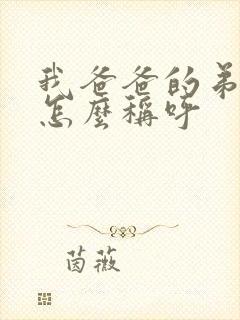 我爸爸的弟
怎麼稱呼
茵薇